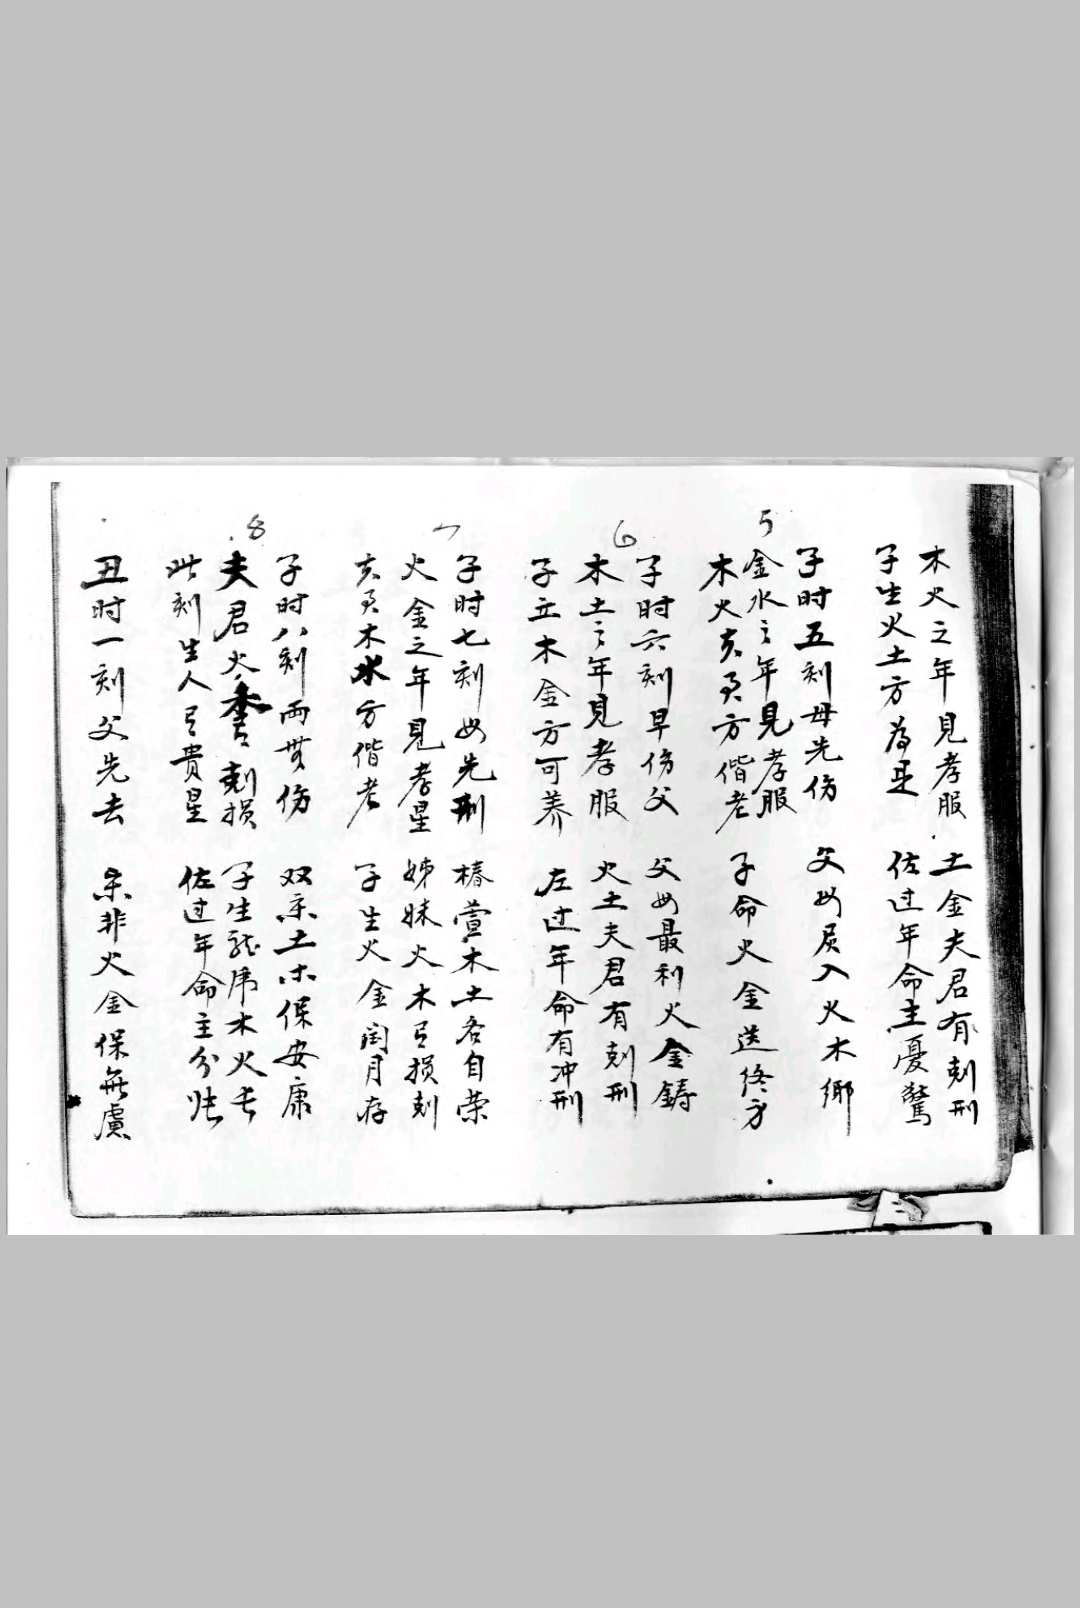 木火之年見孝服 土金夫君有剋刑
子生火土方為是 佐过年命主憂驚
5
子时五刻母先伤 父母辰入火木鄉
金水之年見孝服
木火亥夘方偕老 子命火金送終方
6
子时六刻早伤父 父母最利火金鋳
木土之年見孝服 火土夫君有剋刑
子立木金方可养 左过年命有冲刑
7
子时七刻母先刑 椿萱木土各自荣
火金之年見孝星 姊妹火木弓损剋
亥夘木水方偕老 子生火金闰月存
8
子时八刻両贯伤 双亲土木保安康
夫君火 剋损 子生龍虎木火長
此刻生人弓貴星 佐过年命主分张
丑时一刻父先去 亲非火金保無慮